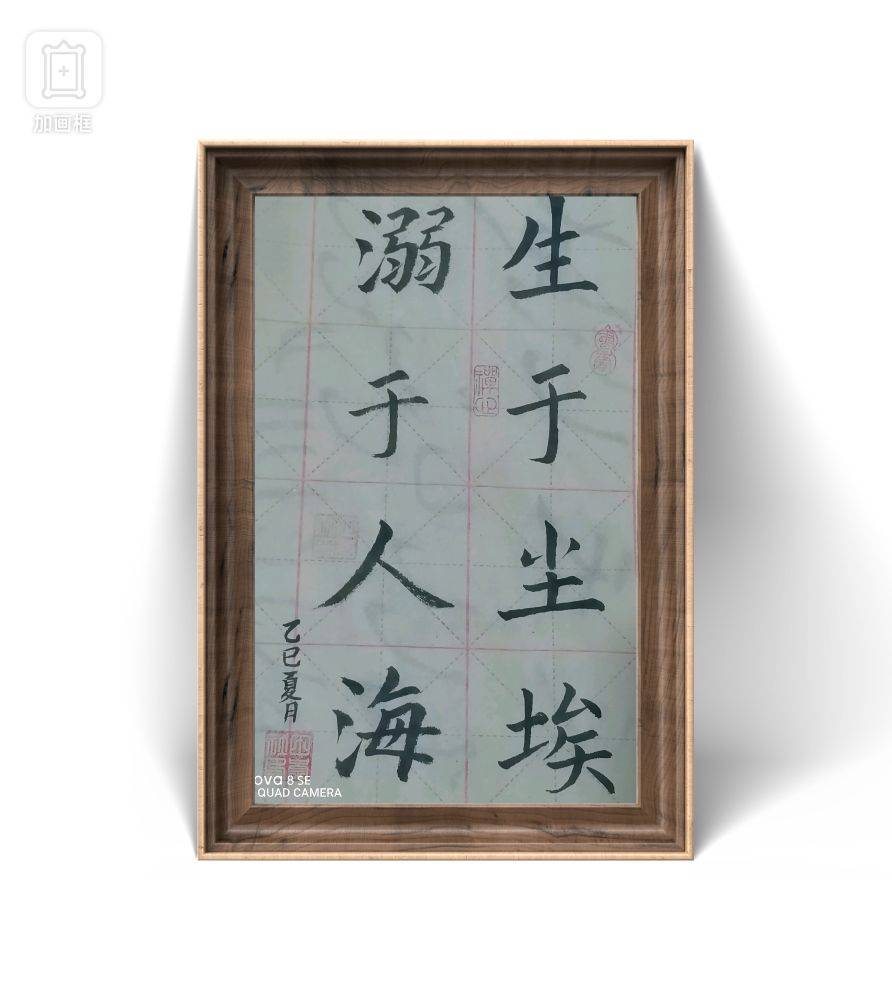 加画框
生于尘埃
溺于人海
乙巳夏月
禅心
ova 8 SE
QUAD CAMERA